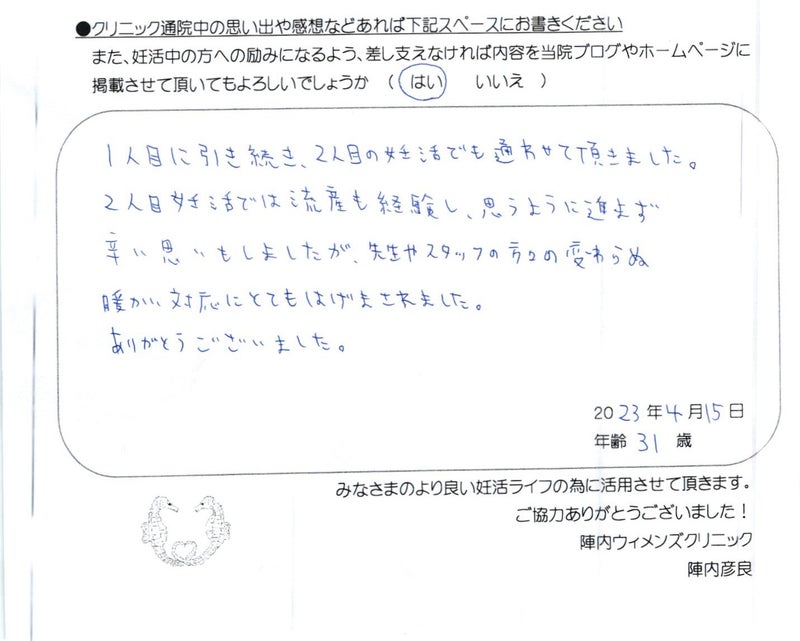 ●クリニック通院中の思い出や感想などあれば下記スペースにお書きください
また、妊活中の方への励みになるよう、差し支えなければ内容を当院ブログやホームページに
掲載させて頂いてもよろしいでしょうか （ はい いいえ ）
1人目に引き続き、2人目の妊活でも通わせて頂きました。
2人目妊活では流産も経験し、思うように進まず
辛い思いもしましたが、先生やスタッフの方々の変わらぬ
暖かい対応にとてもはげまされました。
ありがとうございました。
2023年4月15日
年齢 31 歳
みなさまのより良い妊活ライフの為に活用させて頂きます。
ご協力ありがとうございました！
陣内ウィメンズクリニック
陣内彦良